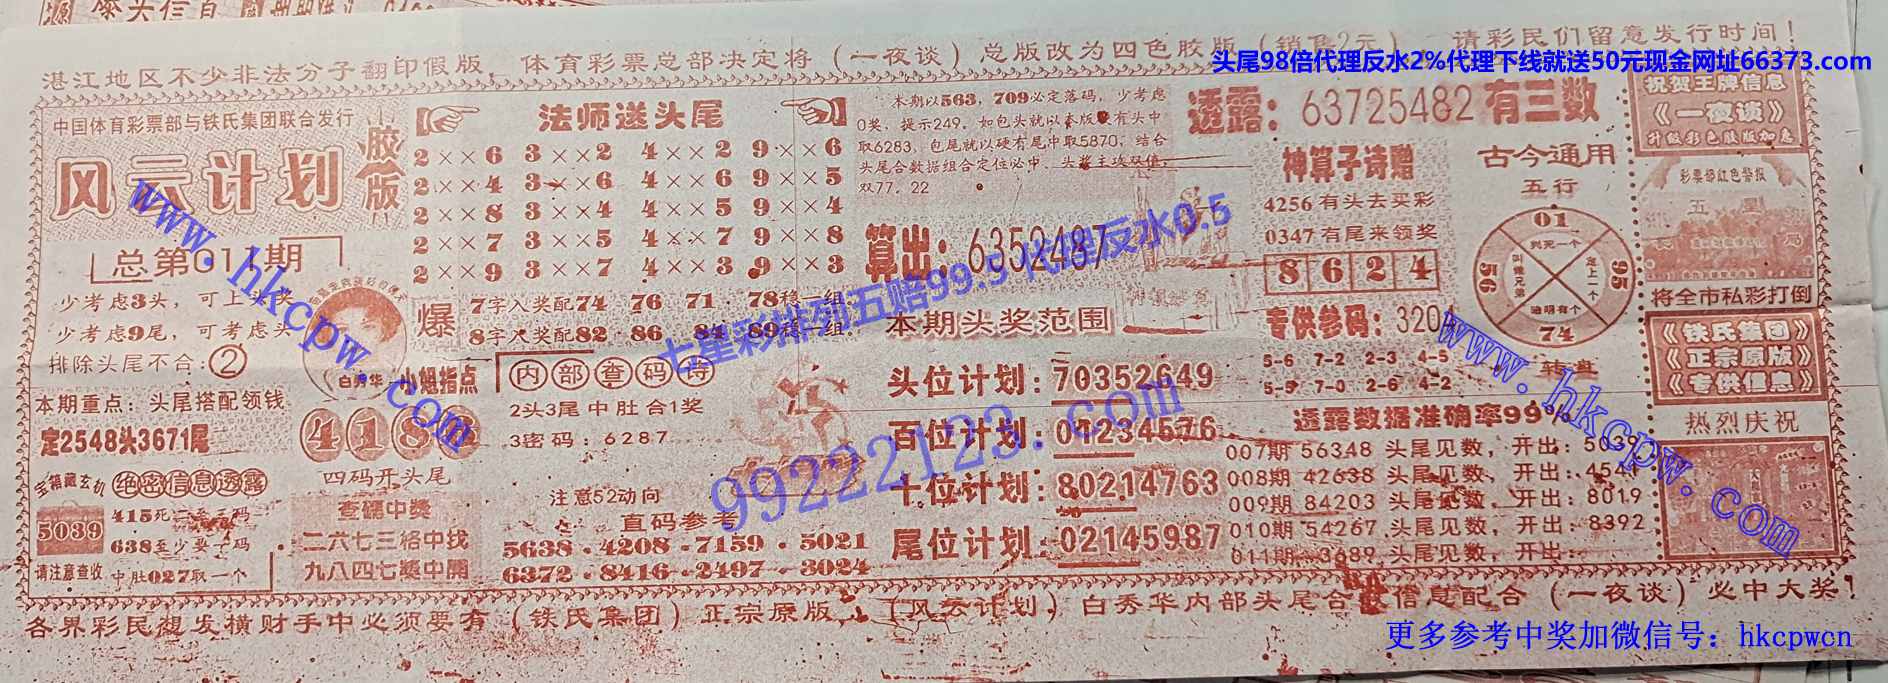 湛江地区不少非法分子翻印假版，体育彩票总部决定将（一夜谈）总版改为四色胶版（销售2元），请彩民们留意发行时间！
头尾98倍代理反水2%代理下线就送50元现金网址66373.com
中国体育彩票部与铁氏集团联合发行
风云计划
胶版
总第011期
少考虑3头，可上头奖
少考虑9尾，可考虑头
排除头尾不合：②
本期重点：头尾搭配领钱
定2548头3671尾
宝箱藏玄机 绝密信息透露
5039
415死二至三码
638至少要一码
请注意查收 中肚027取一个
法师送头尾
2××6 3××2 4××2 9××6
2××4 3××6 4××6 9××5
2××8 3××4 4××5 9××4
2××7 3××5 4××7 9××8
2××9 3××7 4××3 9××3
爆
7字入奖配74 76 71 78稳一组
8字入奖配82 86 84 89稳一组
白秀华
小姐指点
418
四码开头尾
查码中奖
二六七三络中找
九八四七奖中開
内部查码诗
2头3尾中肚合1奖
3密码：6287
注意52动向
直码参考
5638·4208·7159·5021
6372·8416·2497·3024
本期以563，709必定落码，少考虑
0奖，提示249。如包头就以本版硬有头中
取6283，包尾就以硬有尾中取5870，结合
头尾合数据组合定位必中。头奖主攻双值：
双77．22
算出：6352487
本期头奖范围
头位计划：70352649
百位计划：01234576
十位计划：80214763
尾位计划：02145987
透露：63725482有三数
神算子诗赠
4256有头去买彩
0347有尾来领奖
8 6 2 4
专供参码：320
5-6 7-2 2-3 4-5
5-9 7-0 2-6 4-2
古今通用
五行
01
判死一个
56
叫做兄弟
定上一个
95
动明有个
74
转盘
透露数据准确率99%
007期 56348 头尾见数，开出：5039
008期 42638 头尾见数，开出：454
009期 84203 头尾见数，开出：8019
010期 54267 头尾见数，开出：8392
011期 3689 头尾见数，开出：
祝贺王牌信息
《一夜谈》
升级彩色胶版加急
彩票部红色警报
五星
将全市私彩打倒
《铁氏集团》
《正宗原版》
《专供信息》
热烈庆祝
各界彩民想发横财手中必须要有（铁氏集团）正宗原版，（风云计划）白秀华内部头尾合数信息配合（一夜谈）必中大奖！
www.hkcpw.com
七星彩排列五赔99.5 代理反水0.5
99222123.com
www.hkcpw.com
更多参考中奖加微信号：hkcpwcn